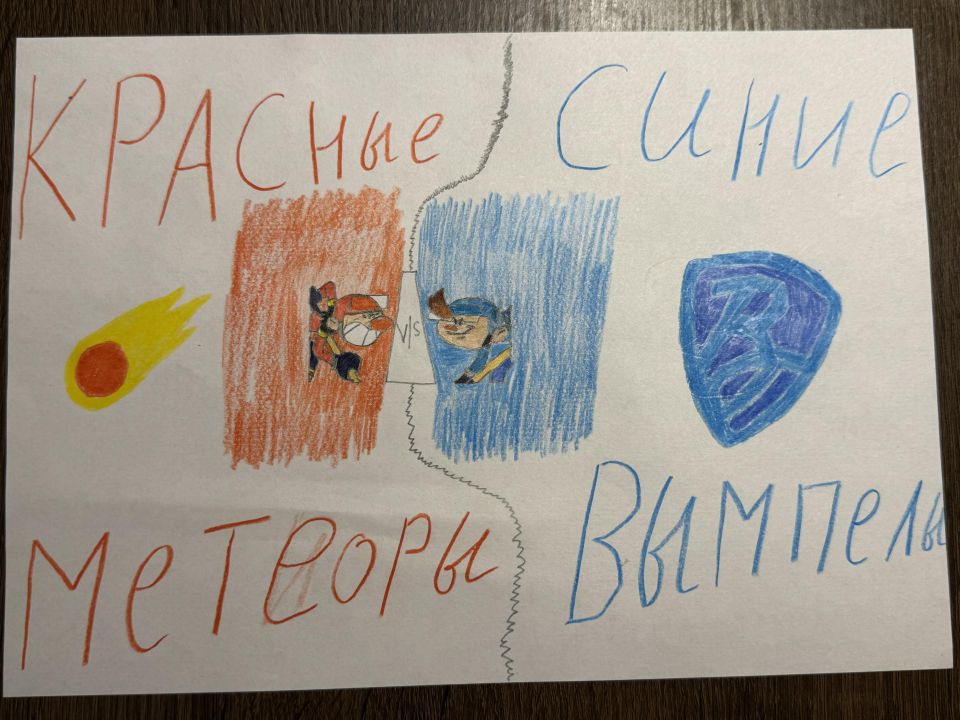 КРАСные
Синие
V|S
В
Метеоры
Вымпелы